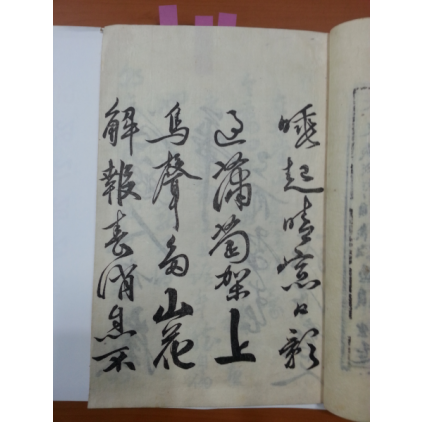 睡起晴窓日影
過蒲萄架上
鳥聲多山花
解報春消息不